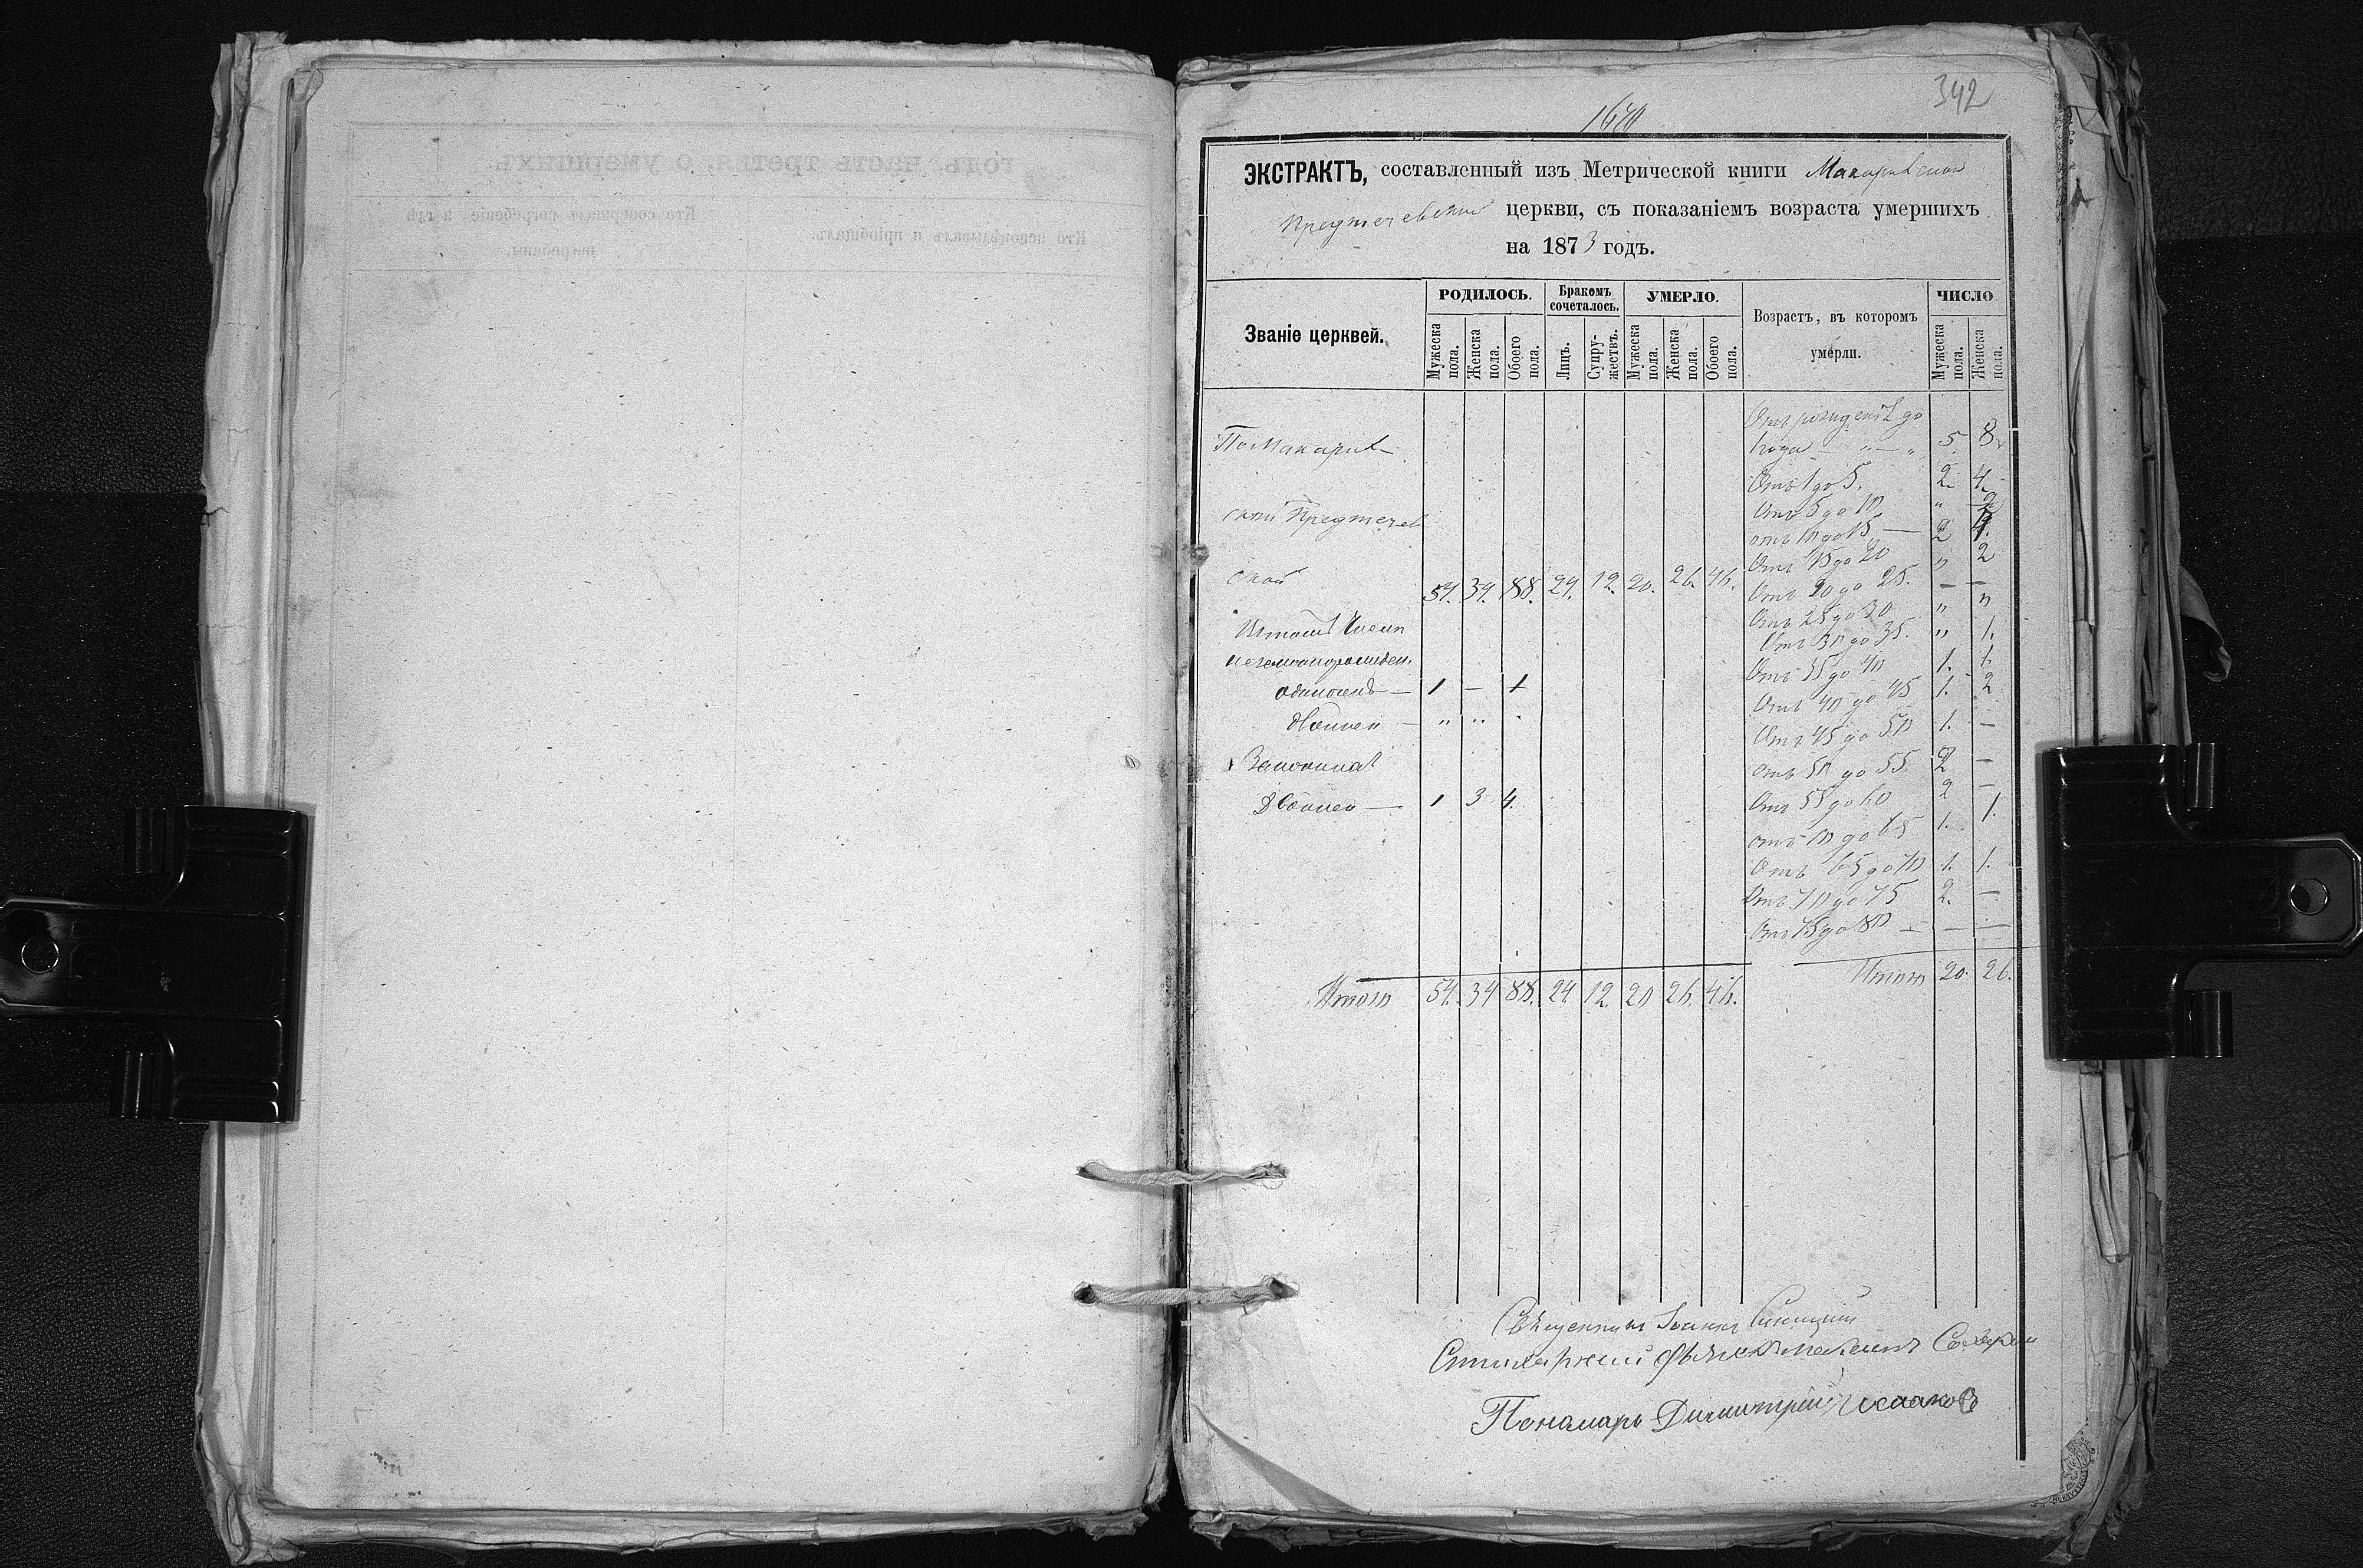 342
ЭКСТРАКТЪ, составленный изъ Метрической книги Макаривской
Предтечевской церкви, съ показаніемъ возраста умершихъ
на 1873 годъ.
Званіе церквей.
РОДИЛОСЬ.
Бракомъ сочеталось.
УМЕРЛО.
Возрастъ, въ которомъ умерли.
ЧИСЛО
Мужеска пола.
Женска пола.
Обоего пола.
Лицъ.
Супружествъ.
Мужеска пола.
Женска пола.
Обоего пола.
Мужеска пола.
Женска пола.
Отъ рожденія до
1 года — „ — „ 5. 8.
По Макарив-
Отъ 1 до 5. 2 4.
Отъ 5 до 10 „
ской Предтечев
отъ 10 до 15 — 2
Отъ 15 до 20 „ 2
ской 54. 34. 88. 24. 12. 20. 26. 46.
Отъ 20 до 25. — —
Отъ 25 до 30 „ „
Въ томъ числѣ
Отъ 30 до 35. „ 1.
незаконорожден.
Отъ 35 до 40 1. 1.
одиночекъ — 1 — 1
Отъ 40 до 45 1. 2
двойней — „ „
Отъ 45 до 50 1. —
Законныхъ
отъ 50 до 55. 2 —
Двойней — 1 3 4.
Отъ 55 до 60 2 —
отъ 60 до 65 1. 1.
Отъ 65 до 70 1. 1.
Отъ 70 до 75 2. —
Отъ 75 до 80 — — —
Итого 20. 26.
Итого 54. 34 88. 24. 12. 20 26. 46.
Священникъ Іоаннъ Синицкій
Пономарь Димитрій Исааковъ